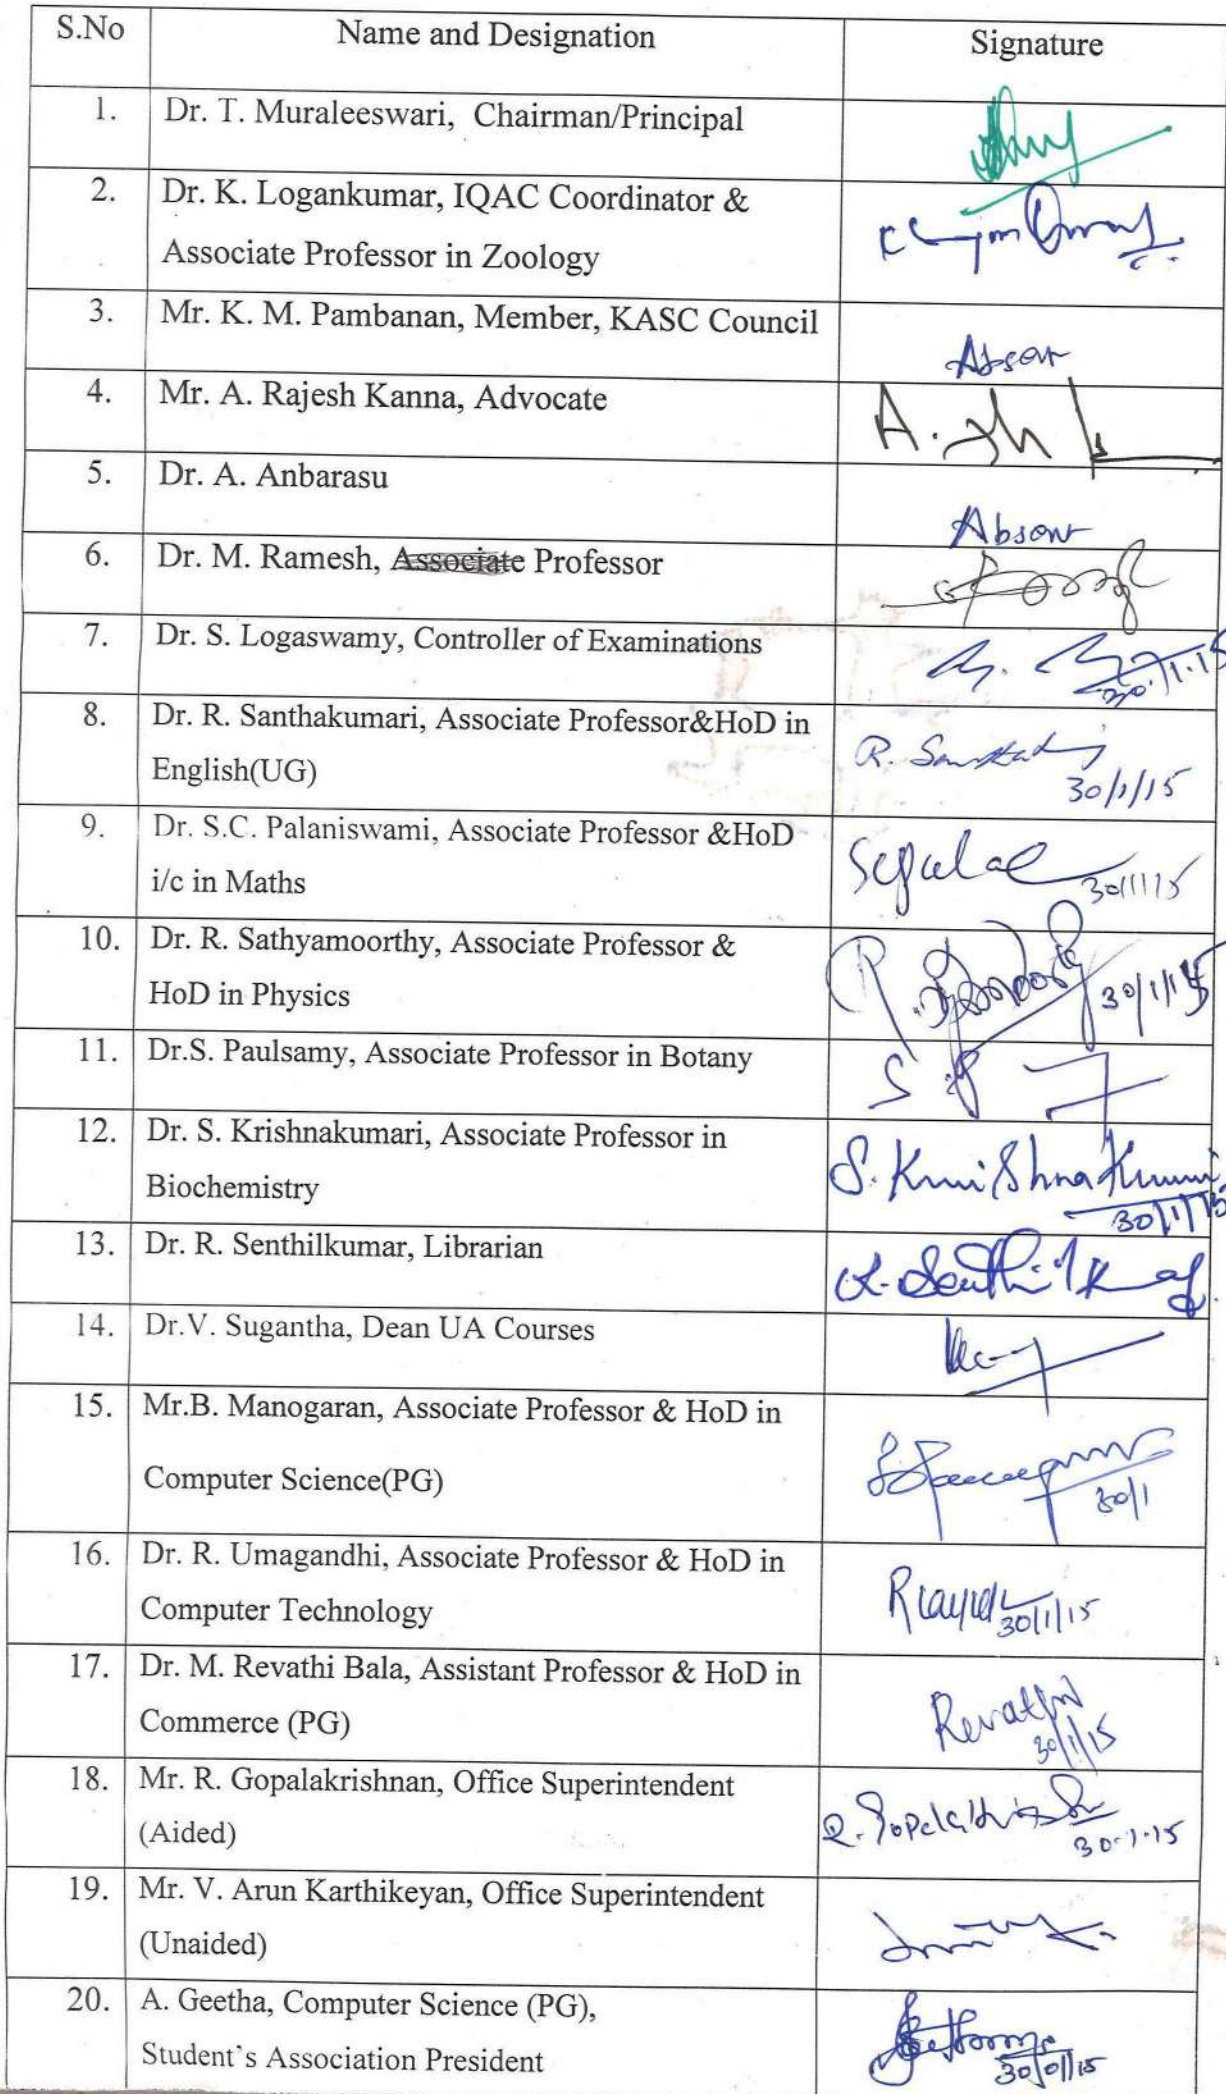 S.No Name and Designation Signature
1. Dr. T. Muraleeswari, Chairman/Principal
2. Dr. K. Logankumar, IQAC Coordinator &
Associate Professor in Zoology
3. Mr. K. M. Pambanan, Member, KASC Council
Absent
4. Mr. A. Rajesh Kanna, Advocate
5. Dr. A. Anbarasu
Absent
6. Dr. M. Ramesh, Associate Professor
7. Dr. S. Logaswamy, Controller of Examinations
30.1.15
8. Dr. R. Santhakumari, Associate Professor&HoD in
English(UG)
30/1/15
9. Dr. S.C. Palaniswami, Associate Professor &HoD
i/c in Maths 30/1/15
10. Dr. R. Sathyamoorthy, Associate Professor &
HoD in Physics 30/1/15
11. Dr.S. Paulsamy, Associate Professor in Botany
12. Dr. S. Krishnakumari, Associate Professor in
Biochemistry S. Krishnakumari
30/1/15
13. Dr. R. Senthilkumar, Librarian
14. Dr.V. Sugantha, Dean UA Courses
15. Mr.B. Manogaran, Associate Professor & HoD in
Computer Science(PG)
30/1
16. Dr. R. Umagandhi, Associate Professor & HoD in
Computer Technology 30/1/15
17. Dr. M. Revathi Bala, Assistant Professor & HoD in
Commerce (PG) Revathi
30/1/15
18. Mr. R. Gopalakrishnan, Office Superintendent
(Aided) 30.1.15
19. Mr. V. Arun Karthikeyan, Office Superintendent
(Unaided)
20. A. Geetha, Computer Science (PG),
Student's Association President 30/01/15